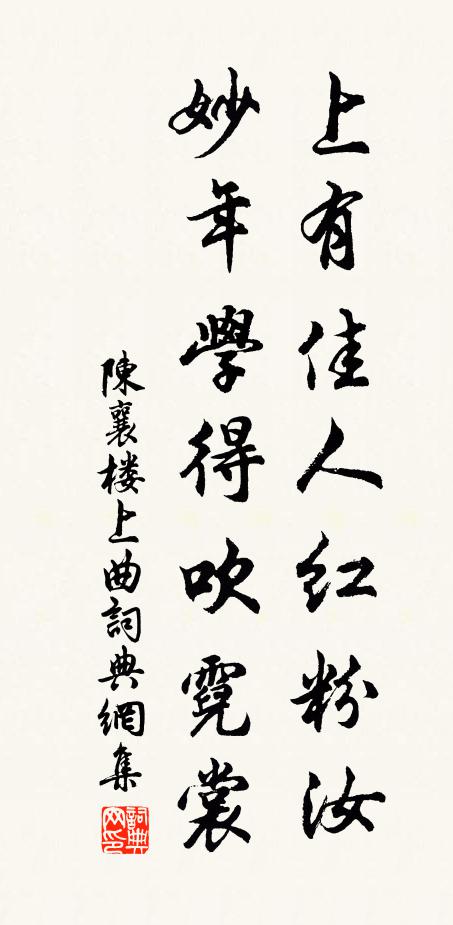 上有佳人红粉汝
妙年學得吹霓裳
陳襄楼上曲詞典網集
詞典網印